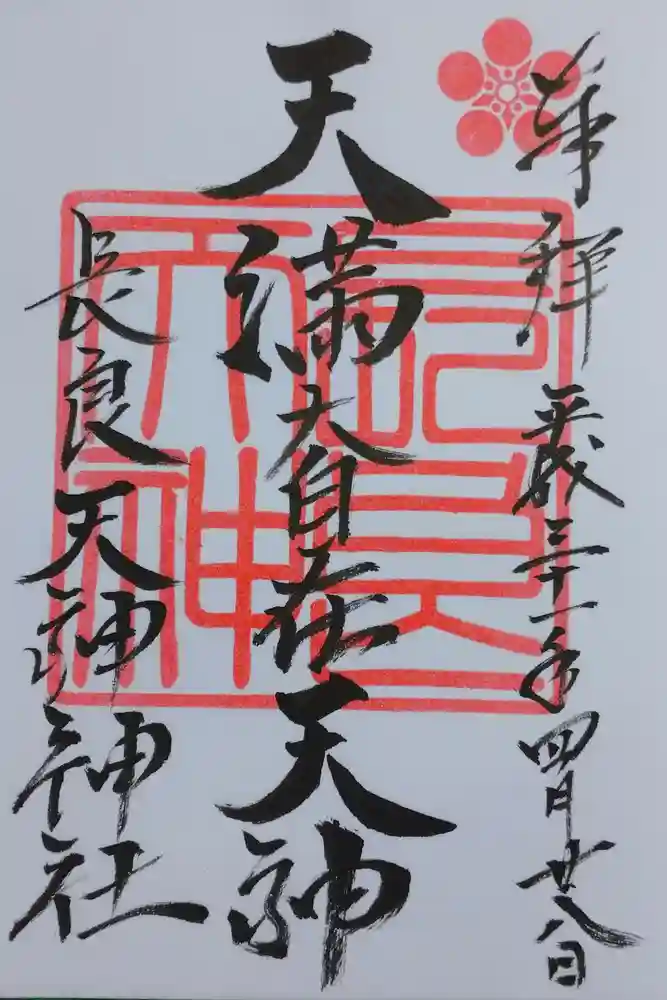 奉拝 平成三十一年四月廿八日
天満大自在天神
長良天神神社
長良
天神